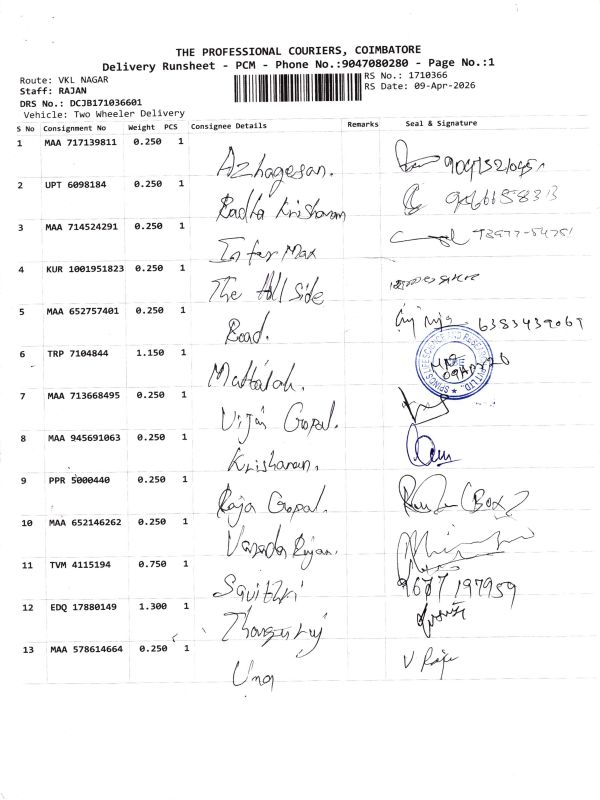 THE PROFESSIONAL COURIERS, COIMBATORE
Delivery Runsheet - PCM - Phone No.:9047080280 - Page No.:1
Route: VKL NAGAR
RS No.: 1710366
Staff: RAJAN
RS Date: 09-Apr-2026
DRS No.: DCJB171036601
Vehicle: Two Wheeler Delivery
S No Consignment No Weight PCS Consignee Details Remarks Seal & Signature
1 MAA 717139811 0.250 1 Azhagesan.
2 UPT 6098184 0.250 1 Radha Krishanan
3 MAA 714524291 0.250 1 Infor Max
4 KUR 1001951823 0.250 1 The Hill Side
5 MAA 652757401 0.250 1 Road. 6383439069
6 TRP 7104844 1.150 1
7 MAA 713668495 0.250 1 Vijai Gopal.
8 MAA 945691063 0.250 1 Krishanan.
9 PPR 5000440 0.250 1 Raja Gopal.
10 MAA 652146262 0.250 1 Varada Rajan.
11 TVM 4115194 0.750 1 9677 197959
12 EDQ 17880149 1.300 1
13 MAA 578614664 0.250 1 Uma V Raja